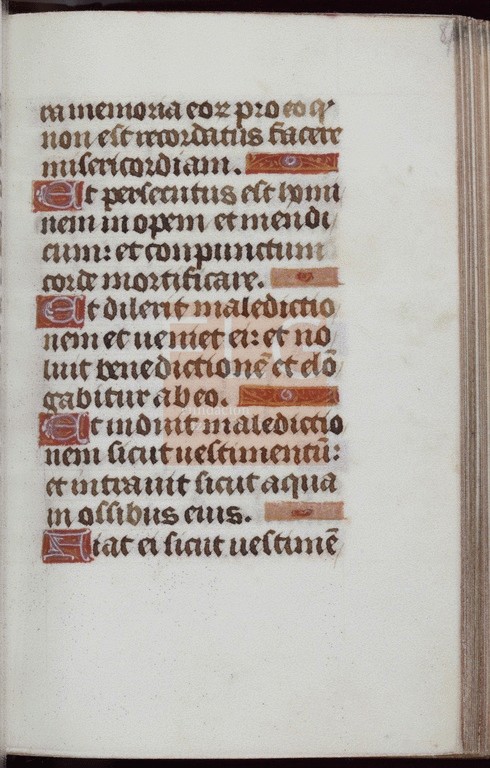 ra memoria eoꝝ pro eo q
non est recordatus facere
misericordiam.
Et persecutus est homi
nem inopem et mendi
cum: et conpunctum
corde mortificare.
Et dilexit maledictio
nem et veniet ei: et no
luit benedictionē et elō
gabitur ab eo.
Et induit maledictio
nem sicut vestimentū:
et intravit sicut aqua
in ossibus eius.
fiat ei sicut vestimē